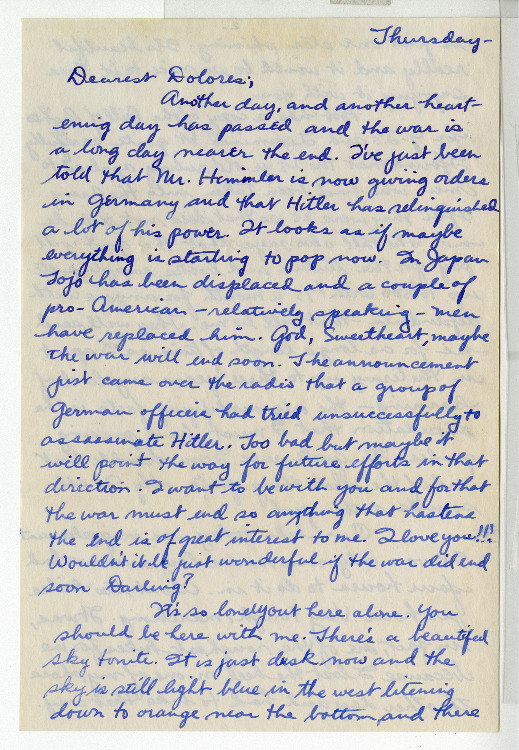 Thursday-
Dearest Dolores;
Another day, and another heart-
ening day has passed and the war is
a long day nearer the end. I've just been
told that Mr. Himmler is now giving orders
in Germany and that Hitler has relinquished
a lot of his power. It looks as if maybe
everything is starting to pop now. In Japan
Tojo has been displaced and a couple of
pro-American - relatively speaking - men
have replaced him. God, Sweetheart, maybe
the war will end soon. The announcement
just came over the radio that a group of
German officers had tried unsuccessfully to
assassinate Hitler. Too bad but maybe it
will point the way for future efforts in that
direction. I want to be with you and for that
the war must end so anything that hastens
the end is of great interest to me. I love you!!!
Wouldn't it be just wonderful if the war did end
soon Darling?
It's so lonely out here alone. You
should be here with me. There's a beautiful
sky tonite. It is just dusk now and the
sky is still light blue in the west litening
down to orange near the bottom, and there